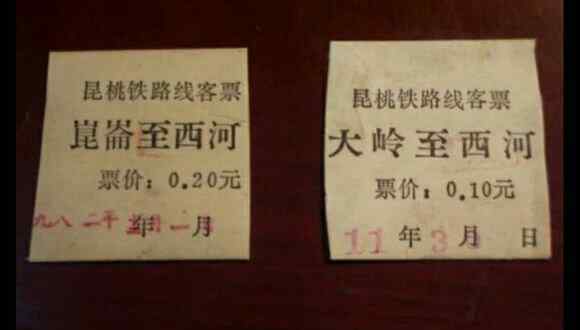 昆桃铁路线客票
崑崙至西河
票价：0.20元
九八二年 年月
昆桃铁路线客票
大岭至西河
票价：0.10元
11年3月 日